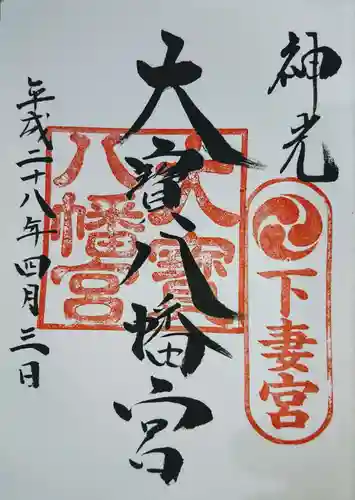 神光
下妻宮
大寳八幡宮
大寳八幡宮
平成二十八年四月三日